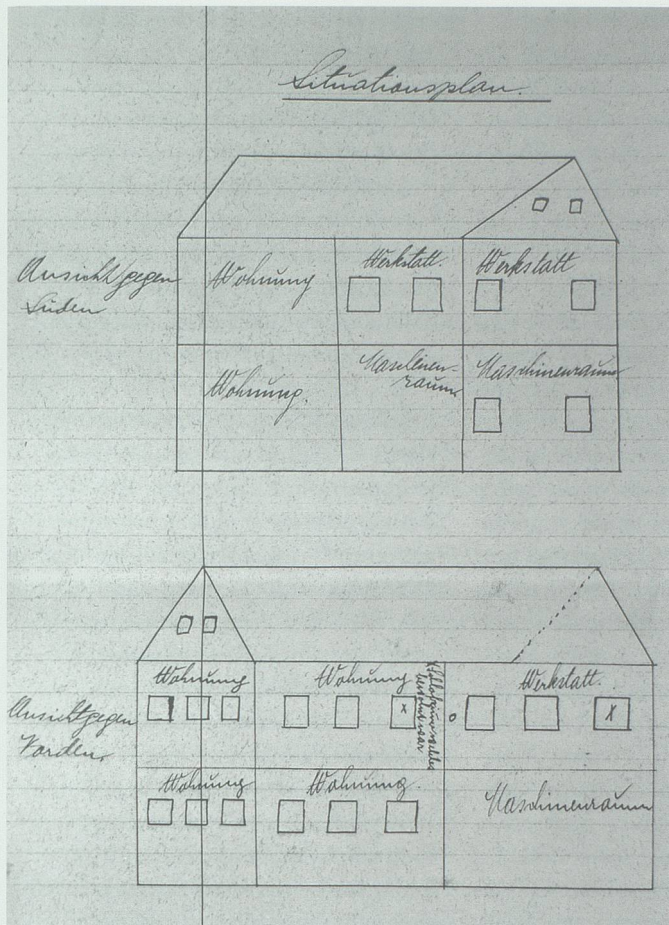 Situationsplan.
Ansicht gegen
Süden
Wohnung
Werkstatt.
Werkstatt
Wohnung.
Maschinen-
raum
Maschinenraum
Ansicht gegen
Norden.
Wohnung
Wohnung
x
Werkstatt.
X
Wohnung
Wohnung.
Maschinenraum